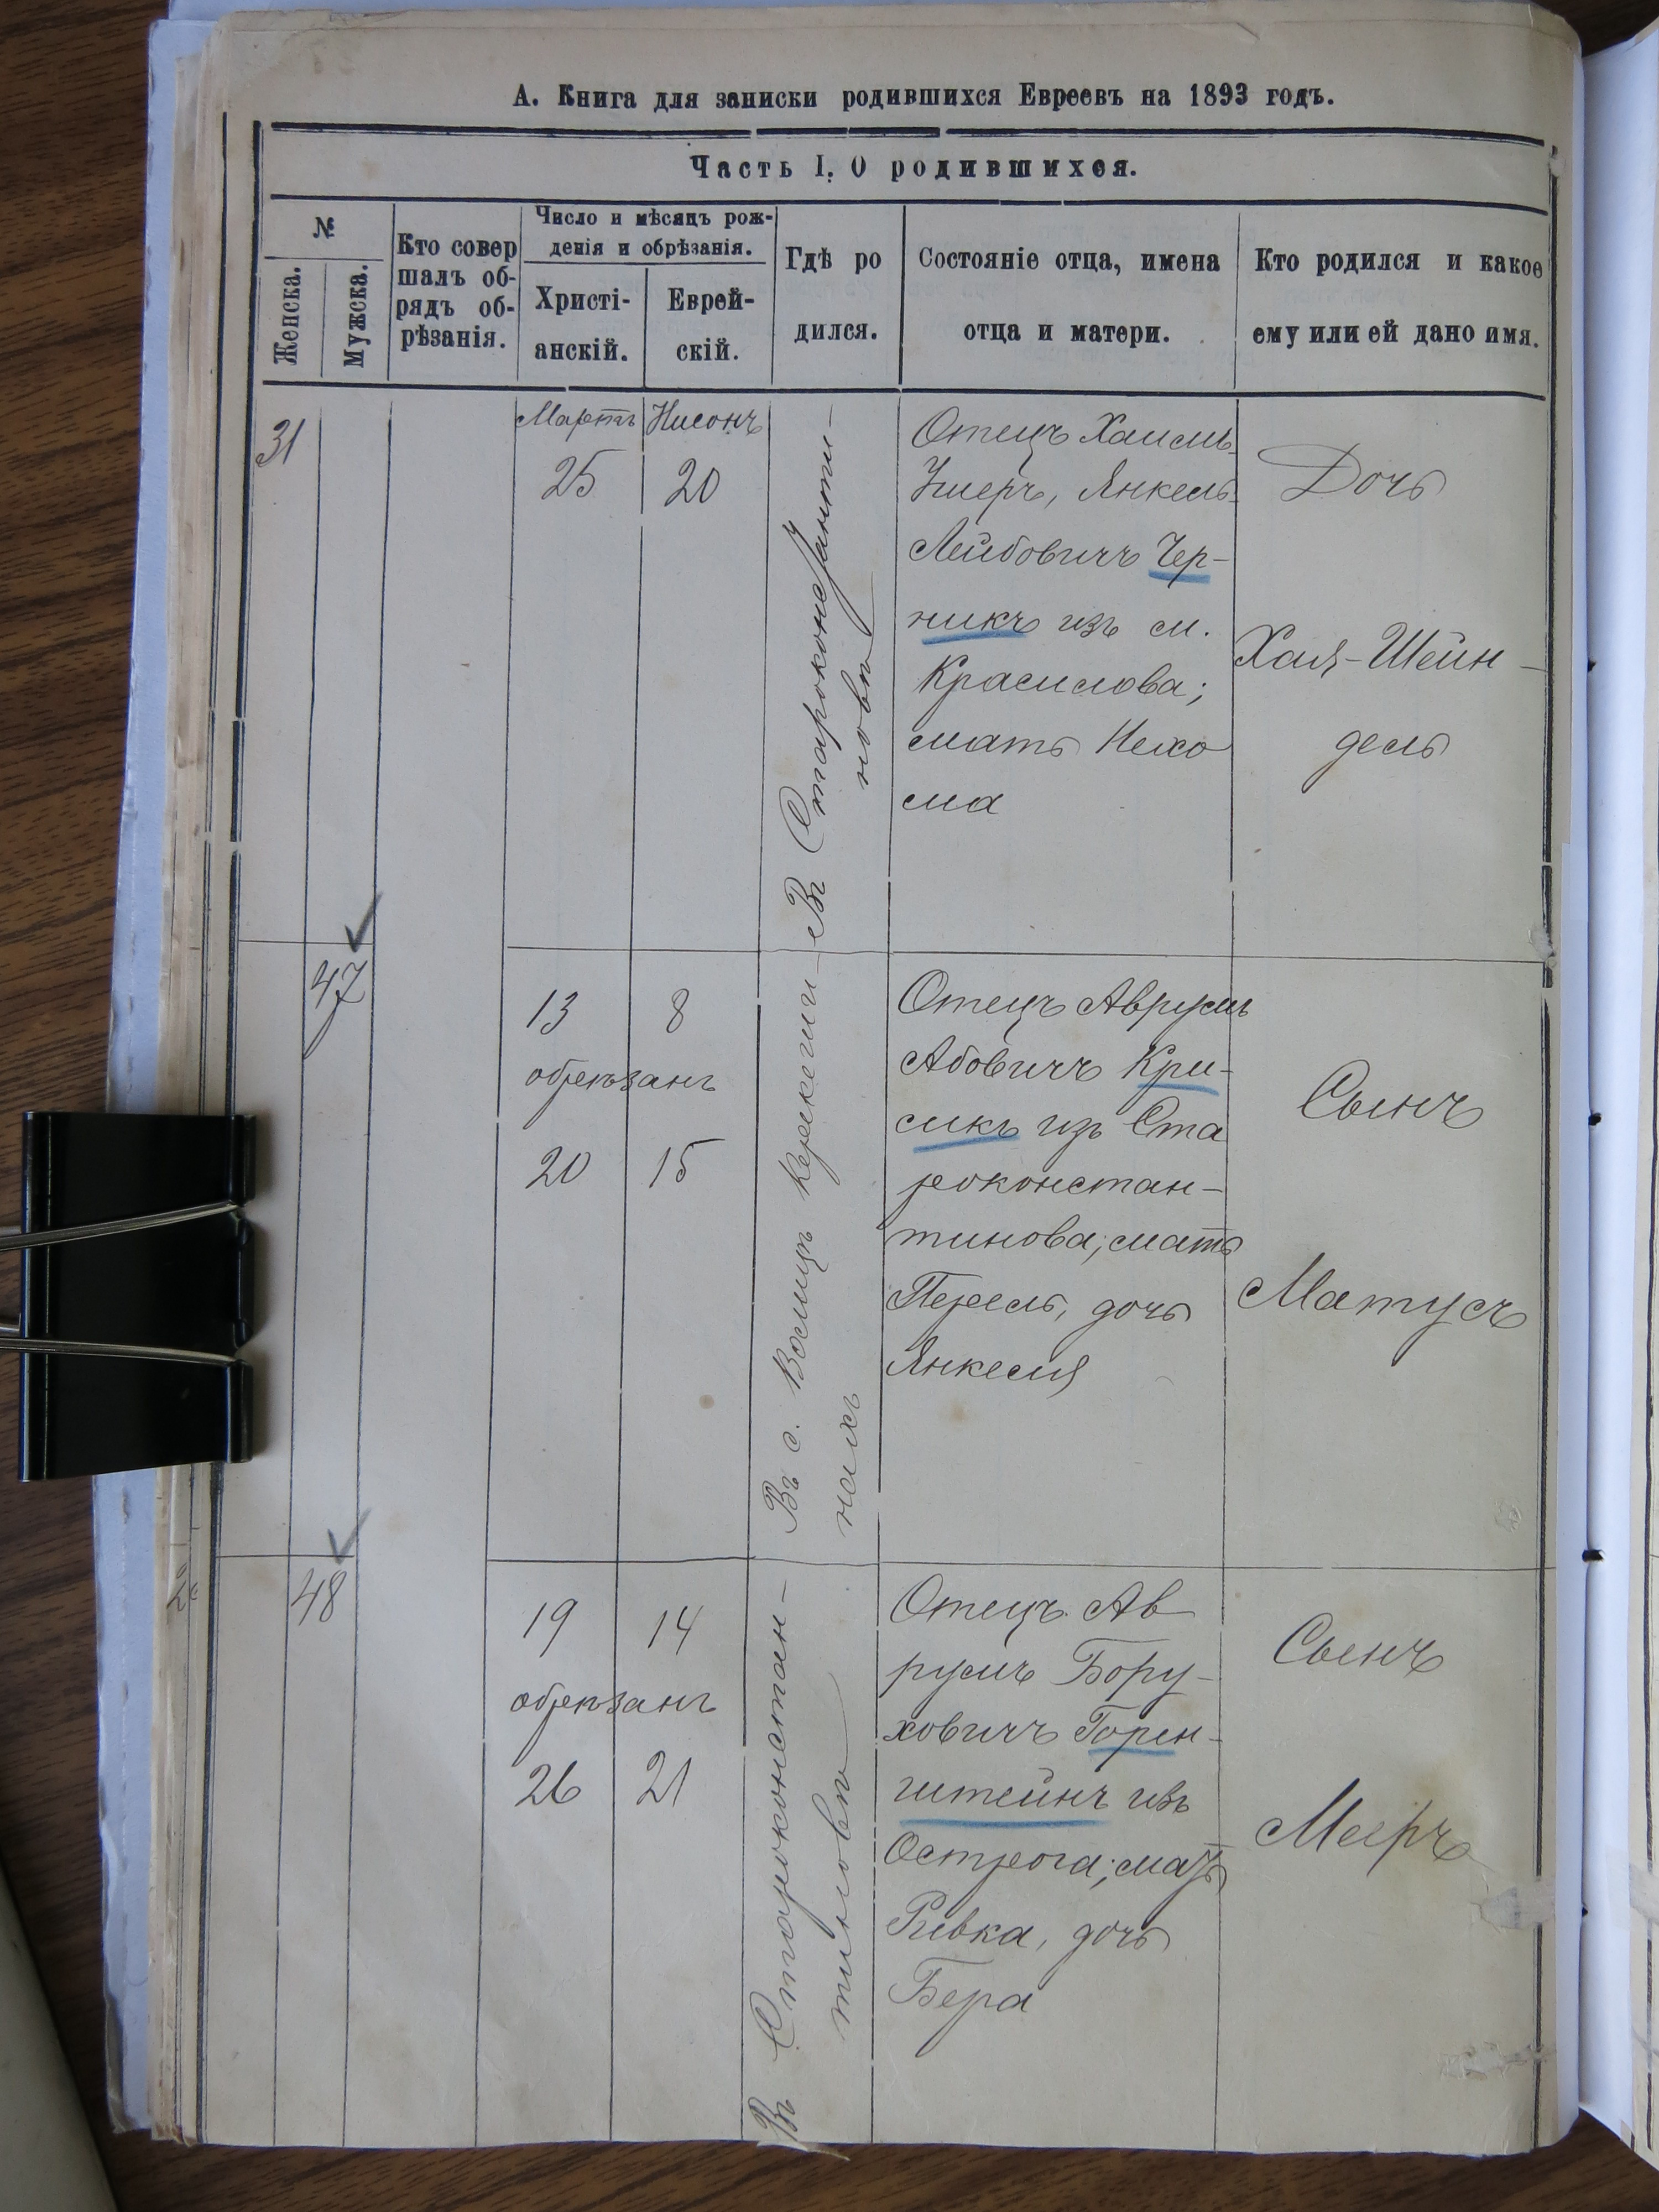 А. Книга для записки родившихся Евреевъ на 1893 годъ.
Часть I. О родившихся.
№
Женска.
Мужска.
Кто совер
шалъ об-
рядъ об-
рѣзанія.
Число и мѣсяцъ рож-
денія и обрѣзанія.
Христі-
анскій.
Еврей-
скій.
Гдѣ ро
дился.
Состояніе отца, имена
отца и матери.
Кто родился и какое
ему или ей дано имя.
31
Мартъ
25
Нисонъ
20
Въ Староконстанти-
новѣ
Отецъ Хаимъ
Ушеръ, Янкель
Лейбовичъ Чер-
никъ изъ м.
Красилова;
мать Нехо
ма
Дочь
Хая-Шейн-
дель
47
13
8
обрѣзанъ
20
15
Въ с.
нахъ
Отецъ Аврумъ
Абовичъ Кри-
сикъ изъ Ста
роконстан-
тинова; мать
Перель, дочь
Янкеля
Сынъ
Матусъ
48
19
14
обрѣзанъ
26
21
Въ Староконстан-
тиновѣ
Отецъ Ав
румъ Бору-
ховичъ Горен-
штейнъ изъ
Острога; мать
Ривка, дочь
Бера
Сынъ
Мееръ